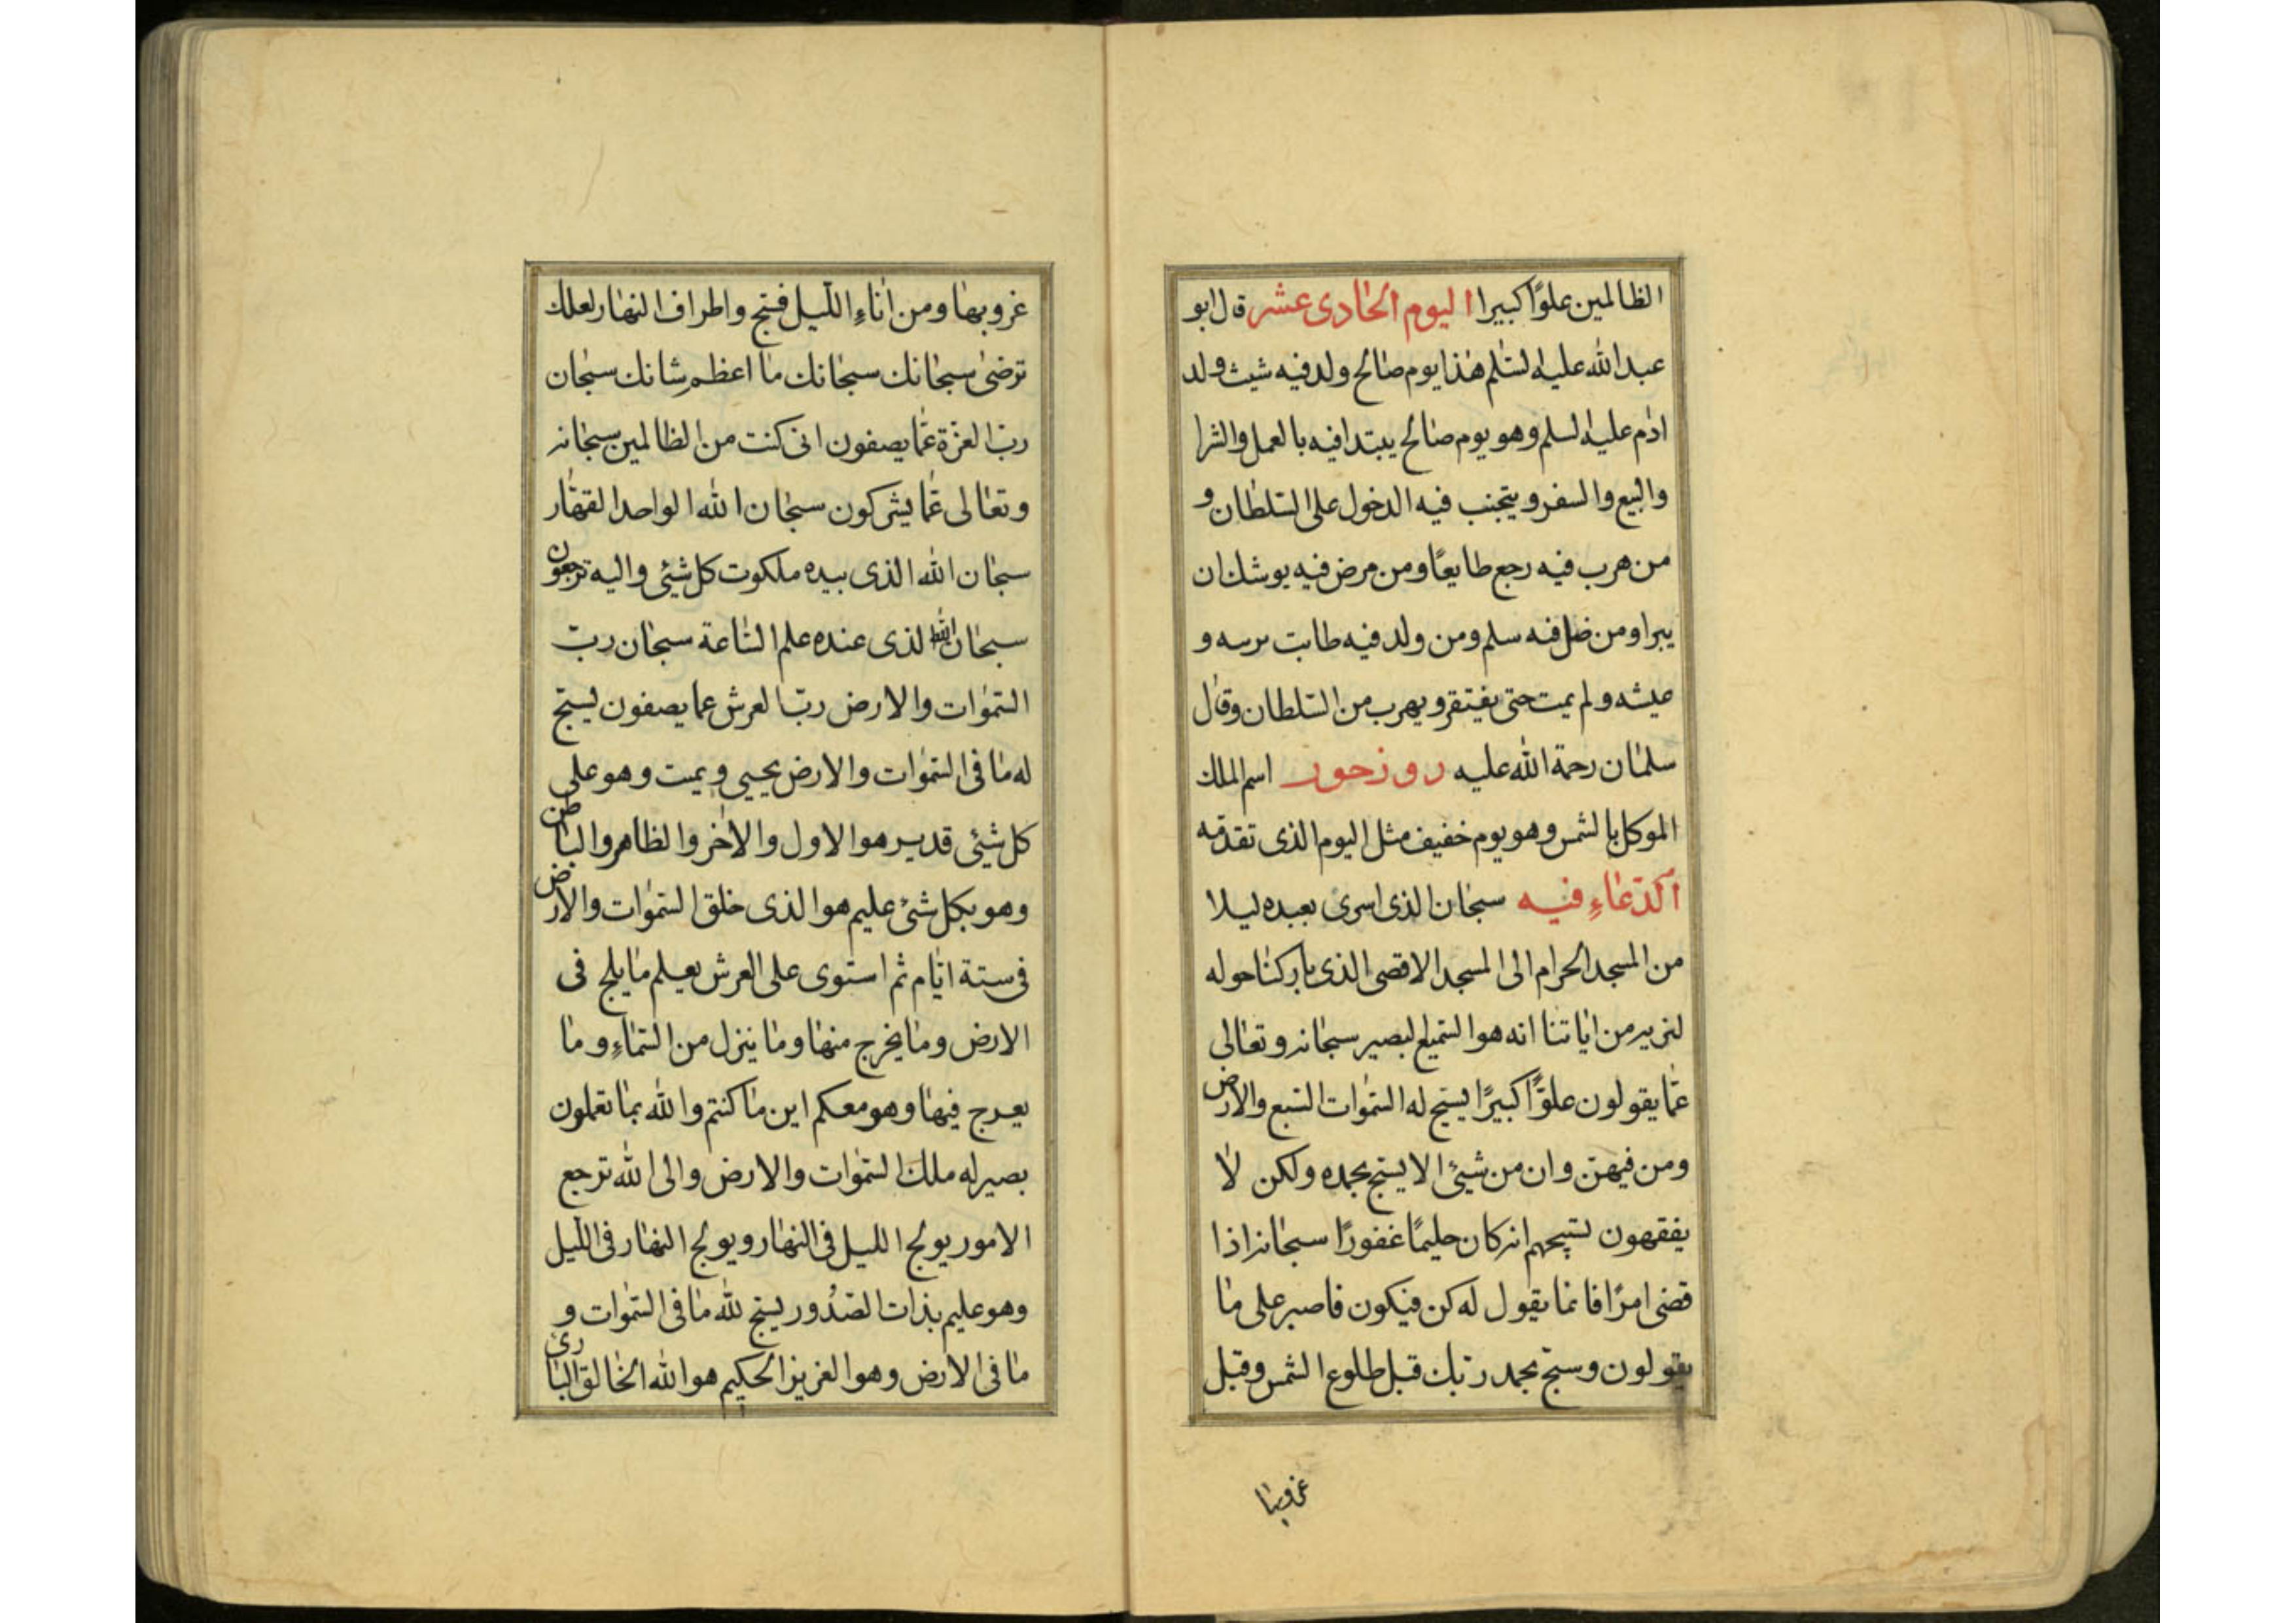 الظالمين علوًا كبيرا اليوم الحادى عشر قال ابو
عبد الله عليه السلم هذا يوم صالح ولد فيه شيث ولد
ادم عليه السلم وهو يوم صالح يبتدا فيه بالعمل والشرا
والبيع والسفر ويتجنب فيه الدخول على السلطان و
من هرب فيه رجع طايعًا ومن مرض فيه يوشك ان
يبرا ومن ضل فيه سلم ومن ولد فيه طابت و
عيشه ولم يمت حتى يفتقر ويهرب من السلطان وقال
سلمان رحمة الله عليه روز خور اسم الملك
الموكل بالشمس وهو يوم خفيف مثل اليوم الذى تقدمه
الدعاءِ فيه سبحان الذى اسرى بعبده ليلا
من المسجد الحرام الى المسجد الاقصى الذى باركنا حوله
لنريه من اياتنا انه هو السميع البصير سبحانه وتعالى
عمّا يقولون علوًّا كبيرًا يسبح له السموات السبع والارض
ومن فيهنّ وان من شيئ الا يسبح بحمده ولكن لا
يفقهون تسبيحهم انه كان حليمًا غفورًا سبحانه اذا
قضى امرًا فانما يقول له كن فيكون فاصبر على ما
يقولون وسبح بحمد ربّك قبل طلوع الشمس وقبل
غروبها
غروبها ومن اناءِ اللّيل فسبح واطراف النهار لعلك
ترضى سبحانك سبحانك ما اعظم شانك سبحان
ربّ العزّة عمّا يصفون انى كنت من الظالمين سبحانه
وتعالى عمّا يشركون سبحان الله الواحد القهّار
سبحان الله الذى بيده ملكوت كل شيئ واليه ترجعون
سبحان الله الذى عنده علم السّاعة سبحان ربّ
السّموات والارض ربّ العرش عما يصفون يسبّح
له ما فى السّموات والارض يحيى ويميت وهو على
كل شيئ قدير هو الاول والاخر والظاهر والباطن
وهو بكل شئ عليم هو الذى خلق السّموات والارض
فى ستة ايّام ثم استوى على العرش يعلم ما يلج فى
الارض وما يخرج منها وما ينزل من السّماءِ وما
يعرج فيها وهو معكم اين ما كنتم والله بما تعملون
بصير له ملك السّموات والارض والى الله ترجع
الامور يولج الليل فى النهار ويولج النهار فى اللّيل
وهو عليم بذات الصّدور يسبح لله ما فى السّموات و
ما فى الارض وهو العزيز الحكيم هو الله الخالق البارئ